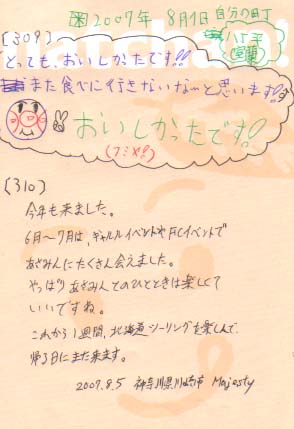 2007年 8月1日 自分の町
[309]
とっても、おいしかったです!!
また食べに行きたいな〜と思います!!
おいしかったです!
[310]
今年も来ました。
6月〜7月は、ギャルルイベントやFCイベントで
あさみんにたくさん会えました。
やっぱりあさみんとのひとときは楽しくて
いいですね。
これから1週間、北海道ツーリングを楽しんで、
帰る日にまた来ます。
2007.8.5 神奈川県川崎市 Majesty